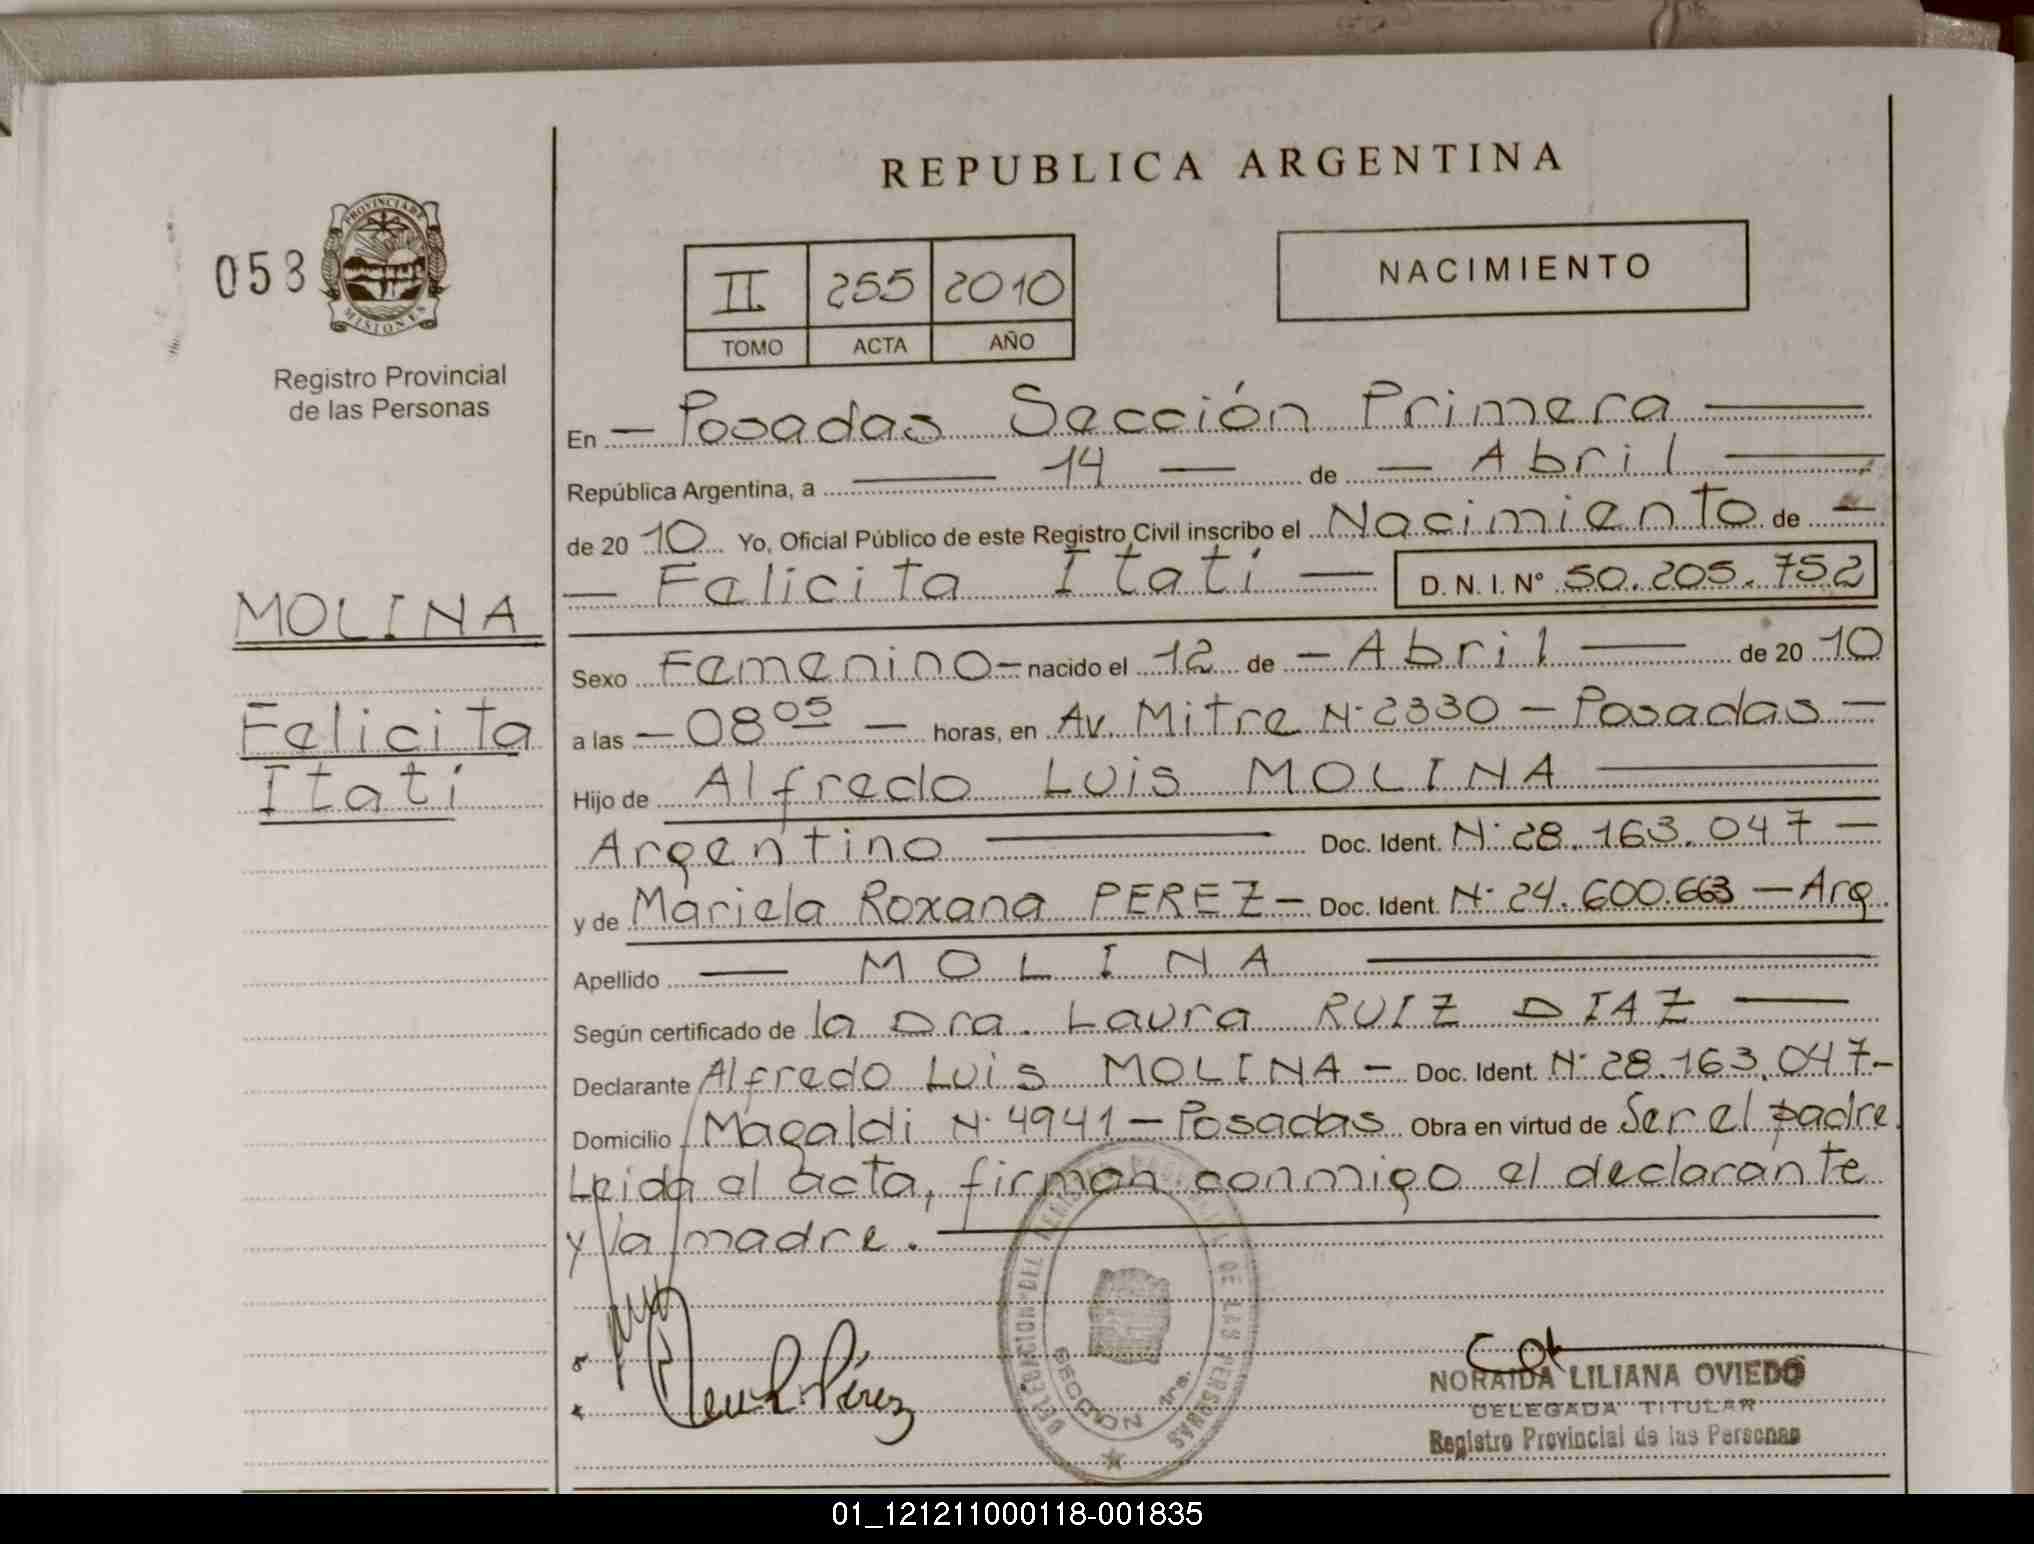 REPUBLICA ARGENTINA
053
PROVINCIA DE
MISIONES
Registro Provincial
de las Personas
II 255 2010
TOMO ACTA AÑO
NACIMIENTO
MOLINA
Felicita
Itatí
En — Posadas Sección Primera —
República Argentina, a — 14 — de — Abril —
de 20 10 Yo, Oficial Público de este Registro Civil inscribo el Nacimiento de —
— Felicita Itatí — D. N. I. N° 50.205.752
Sexo Femenino — nacido el 12 de — Abril — de 20 10
a las — 08 05 — horas, en Av. Mitre N° 2330 — Posadas —
Hijo de Alfredo Luis MOLINA —
Argentino — Doc. Ident. N° 28.163.047 —
y de Mariela Roxana PEREZ — Doc. Ident. N° 24.600.663 — Arg.
Apellido — MOLINA —
Según certificado de la Dra. Laura RUIZ DIAZ —
Declarante Alfredo Luis MOLINA — Doc. Ident. N° 28.163.047 —
Domicilio Magaldi N° 4941 — Posadas Obra en virtud de Ser el padre.
Leida el acta, firman conmigo el declarante
y la madre. —
DELEGACION DEL REGISTRO PROVINCIAL DE LAS PERSONAS
SECCION 1ra.
Pérez
NORAIDA LILIANA OVIEDO
DELEGADA TITULAR
Registro Provincial de las Personas
01_121211000118-001835